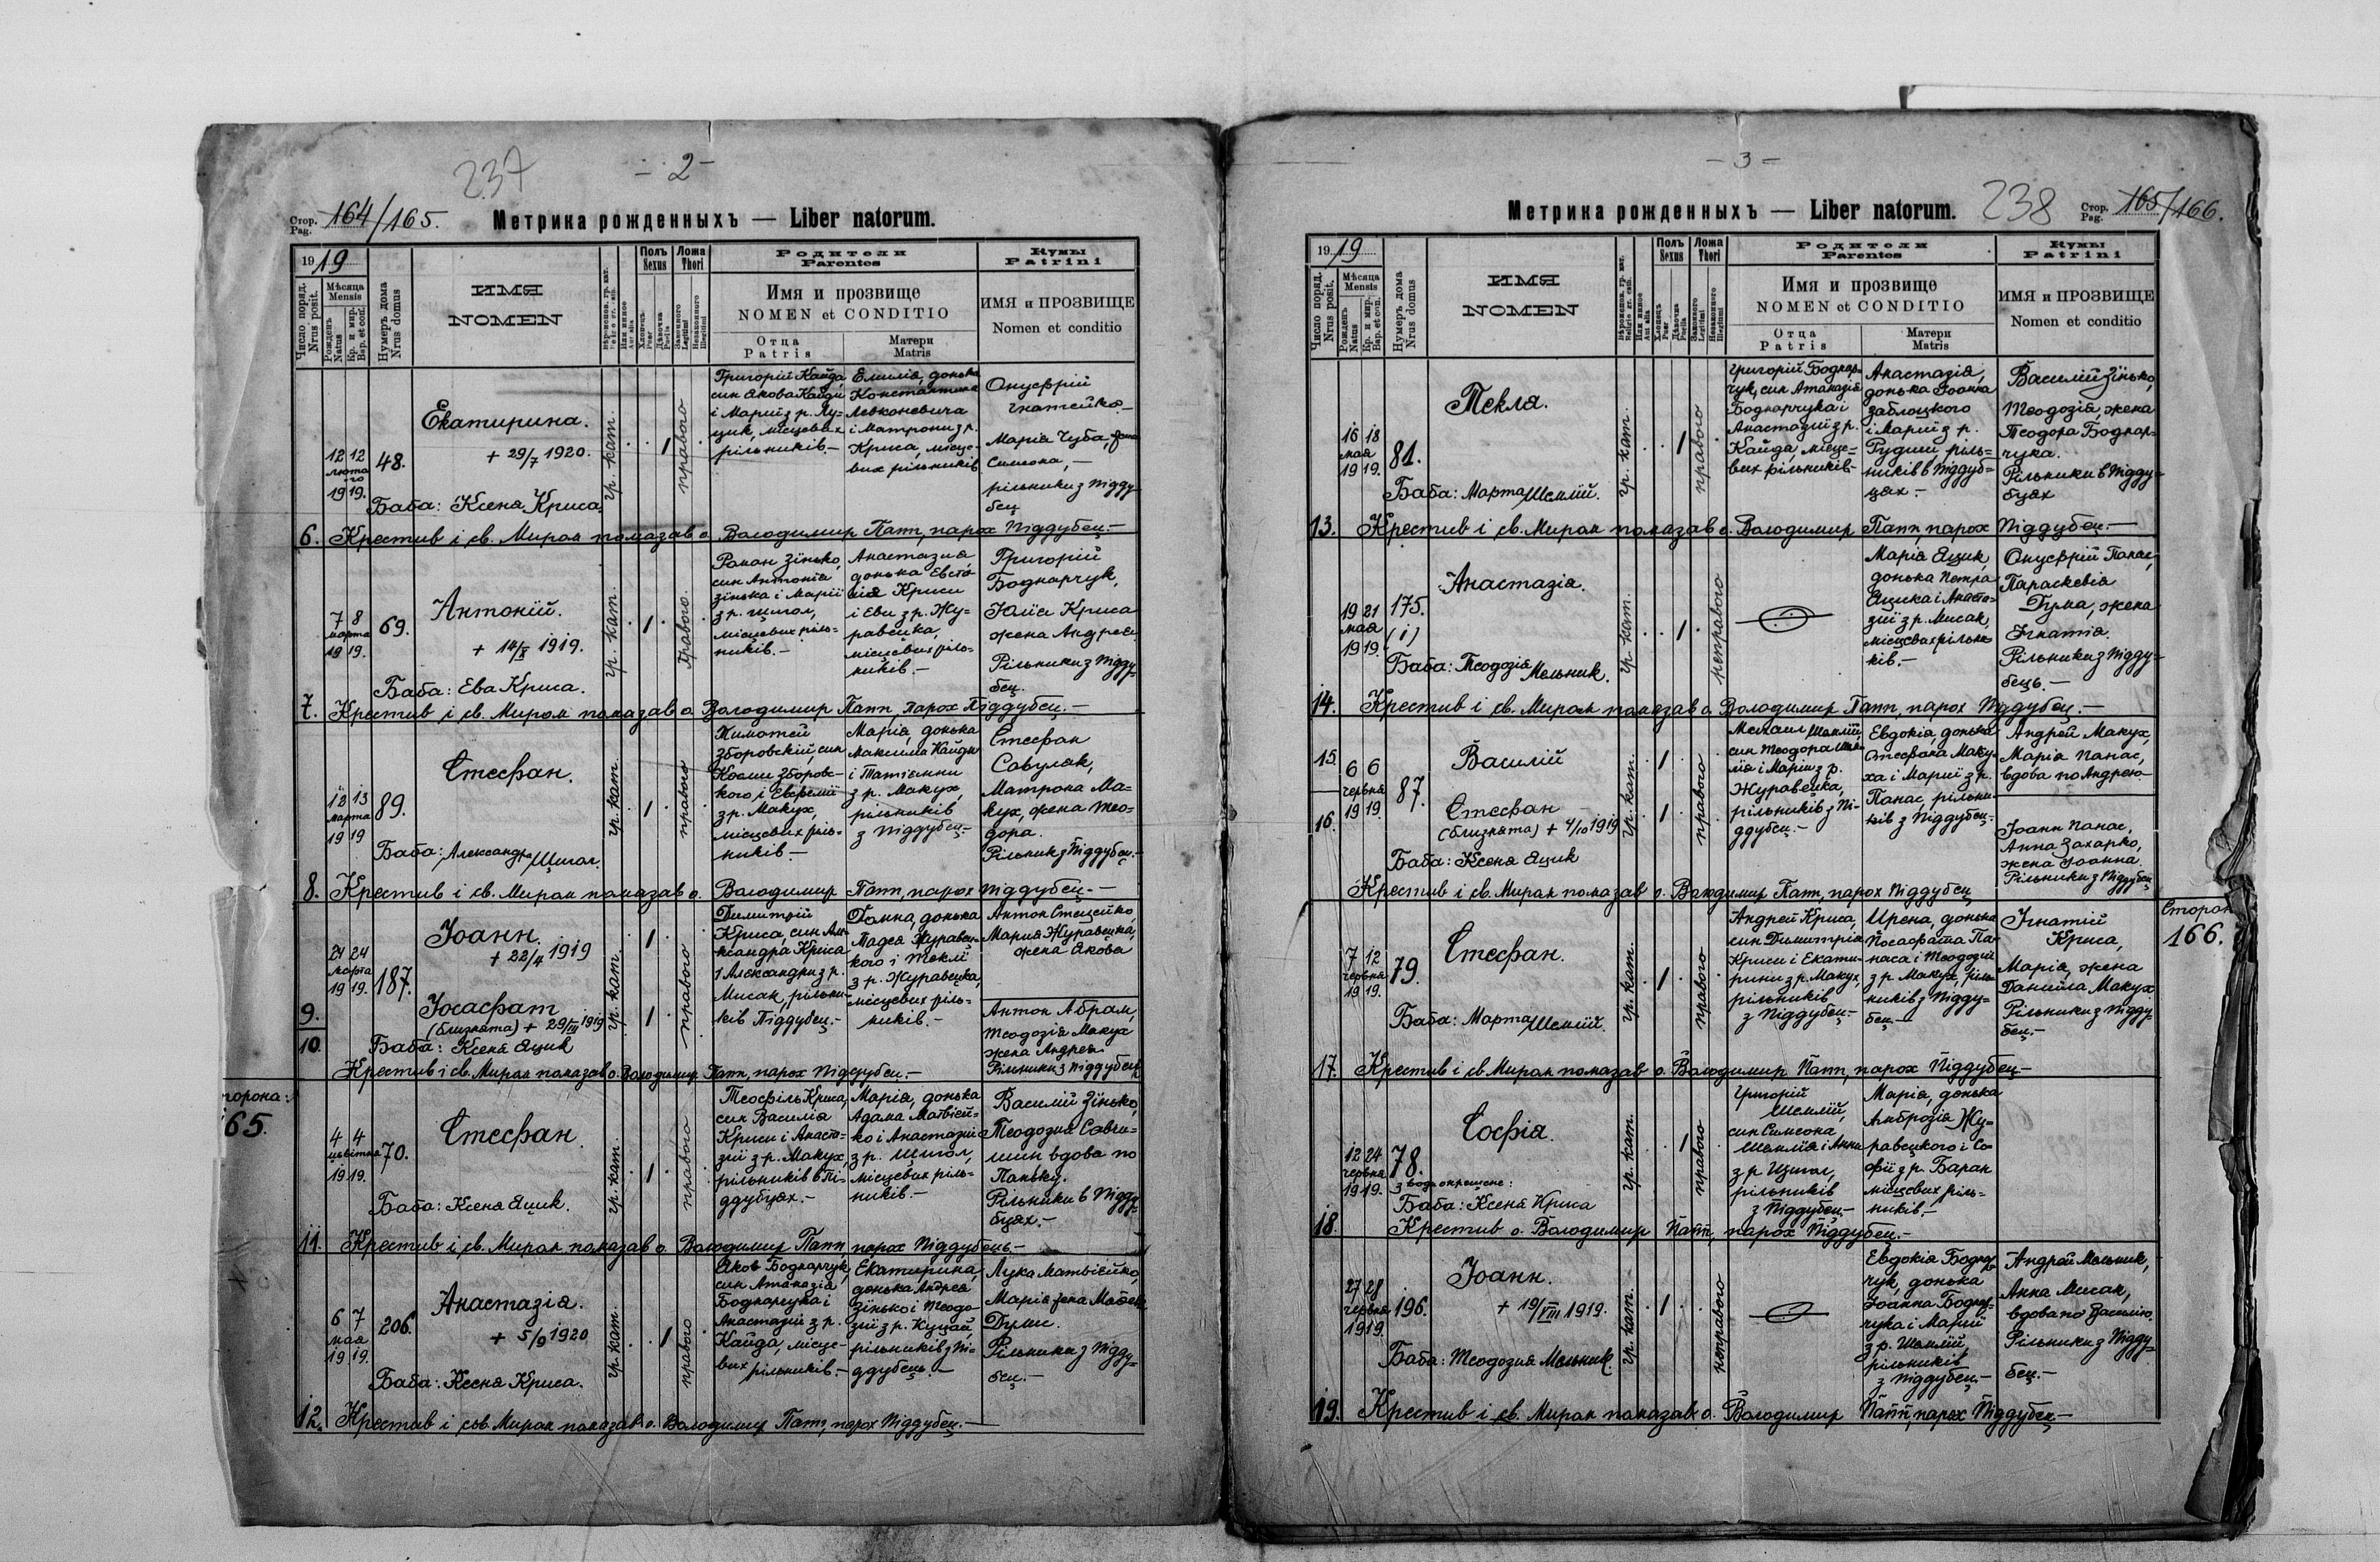 237
- 2 -
Стор.
Pag.
164/165.
Метрика рожденныхъ — Liber natorum.
1919
Число поряд.
Nrus posit.
Мѣсяца
Mensis
Рожденъ
Natus
Кр. и мир.
Bap. et conf.
Нумеръ дома
Nrus domus
ИМЯ
NOMEN
Полъ
Sexus
Хлопецъ
Puer
Дѣвочка
Puella
Ложа
Thori
Законного
Legitimi
Незаконного
Illegitimi
Родители
Parentes
Имя и прозвище
NOMEN et CONDITIO
Отца
Patris
Матери
Matris
Кумы
Patrini
ИМЯ и ПРОЗВИЩЕ
Nomen et conditio
12 12
лютого
1919.
48.
Екатирина.
+ 29/7 1920.
Баба: Ксеня Криса.
гр. кат.
1
правого
Григорій Кайда,
син Якова Кайди
і Марії з р. Лу-
цик, місцевих
рільників-
Емилія, донька
Константина
Левконевича
і Матрони з р.
Криса, місце-
вих рільників
Онуфрій
Гнатейко-
Марія Чуба, жена
Симеона,-
рільники з Підду-
бец
6. Крестив і св. Миром помазав о. Володимир Папп, парох Піддубец.-
7 8
марта
1919.
69.
Антоній.
+ 14/X 1919.
Баба: Ева Криса.
гр. кат.
1
Правого.
Роман Зінько,
син Антонія
Зінька і Марії
з р. Щигол,
місцевих ріль-
ників.-
Анастазия,
донька Евста-
хія Криси
і Еви з р. Жу-
равецка,
місцевих ріль-
ників.-
Григорій
Боднарчук,
Юлія Криса
жена Андрея
Рільники з Підду-
бец.
7. Крестив і св. Миром помазав о. Володимир Папп, парох Піддубец.-
12 13
марта
1919
89.
Стефан.
Баба: Александра Щигол.
гр. кат.
1
правого
Тимотей
Зборовскій, син
Косми Зборовс-
кого і Евфемії
з р. Макух,
місцевих ріль-
ників.-
Марія, донька
Максима Кайди
і Татіянни
з р. Макух,
рільників
з Піддубец-
Стефан
Савуляк,
Матрона Ма-
кух, жена Тео-
дора.
Рільник з Піддубец.-
8. Крестив і св. Миром помазав о. Володимир Папп, парох Піддубец.-
24 24
марта
1919.
187.
Іоанн.
+ 22/4 1919
Йосафат
(близнята) + 29/III 1919
Баба: Ксеня Яцик
гр. кат.
1
1
правого
Димитрій
Криса, син Але-
ксандра Криса
і Александри з р.
Мисак, рільни-
ків Піддубец.-
Домна, донька
Тадея Журавец-
кого і Теклі
з р. Журавецка,
місцевих ріль-
ників.-
Антон Стецейко,
Мария Журавецка,
жена Якова
Антон Абрам,
Теодозія Макух
жена Андрея
Рільники з Піддубец
9.
10.
Крестив і св. Миром помазав о. Володимир Папп, парох Піддубец.-
торона:
65.
4 4
цвітня
1919.
70.
Стефан.
Баба: Ксеня Яцик.
гр. кат.
1
правого
Теофіль Криса,
син Василія
Криси і Анаста-
зії з р. Макух,
рільників в Пі-
ддубцях.-
Марія, донька
Адама Матвієй-
ко і Анастазії
з р. Щигол,
місцевих ріль-
ників.-
Василій Зінько,
Теодозия Савчи-
шин вдова по
Паньку.
Рільники в Підду-
бцях.-
11. Крестив і св. Миром помазав о. Володимир Папп, парох Піддубець.-
6 7
мая
1919.
206.
Анастазія.
+ 5/9 1920
Баба: Ксеня Криса.
гр. кат.
1
правого
Яков Боднарчук,
син Атаназія
Боднарчука і
Анастазії з р.
Кайда, місце-
вих рільників.-
Екатирина,
донька Андрея
Зінько і Теодо-
зії з р. Куцай,
рільників з Пі-
ддубець.-
Лука Матвієйко,
Марія жена Матея
Думи.
Рільники з Підду-
бец.-
12. Крестив і св. Миром помазав о. Володимир Папп, парох Піддубец.-
- 3 -
238
Стор.
Pag.
165/166.
Метрика рожденныхъ — Liber natorum.
1919
Число поряд.
Nrus posit.
Мѣсяца
Mensis
Рожденъ
Natus
Кр. и мир.
Bap. et con.
Нумеръ дома
Nrus domus
ИМЯ
NOMEN
Полъ
Sexus
Хлопецъ
Puer
Дѣвочка
Puella
Ложа
Thori
Законного
Legitimi
Незаконного
Illegitimi
Родители
Parentes
Имя и прозвище
NOMEN et CONDITIO
Отца
Patris
Матери
Matris
Кумы
Patrini
ИМЯ и ПРОЗВИЩЕ
Nomen et conditio
16 18
мая
1919.
81.
Текля.
Баба: Марта Шемлій.
гр. кат.
1
правого
Григорій Боднар-
чук, син Атаназія
Боднарчука і
Анастазії з р.
Кайда, місце-
вих рільників-
Анастазія,
донька Іоанна
Заблоцкого
і Марії з р.
Рудий, ріль-
ників в Піддуб-
цях.-
Василій Зінько,
Теодозія, жена
Теодора Боднар-
чука.
Рільники в Підду-
бцях
13. Крестив і св. Миром помазав о. Володимир Папп, парох Піддубец.-
19 21
мая
1919.
175.
(1)
Анастазія.
Баба: Теодозія Мельник.
гр. кат.
1
неправого
Марія Яцик,
донька Петра
Яцика і Анаста-
зії з р. Мисак,
місцевих рільни-
ків.-
Онуфрій Панас,
Параскевія
Дума, жена
Ігнатія.
Рільники з Підду-
бець.-
14. Крестив і св. Миром помазав о. Володимир Папп, парох Піддубец.-
15.
16.
6 6
червня
1919.
87.
Василій
Стефан
(близнята) + 4/10 1919
Баба: Ксеня Яцик
гр. кат.
гр. кат.
1
1
правого
Михаил Шемлій,
син Теодора Шем-
лія і Марії з р.
Журавецка,
рільників з Пі-
ддубец.-
Евдокія, донька
Стефана Маку-
ха і Марії з р.
Панас, рільни-
ків з Піддубец.-
Андрей Макух,
Марія Панас,
вдова по Андрею-
Іоанн Панас,
Анна Захарко,
жена Іоанна.
Рільники з Піддубец
Крестив і св. Миром помазав о. Володимир Папп, парох Піддубец
Сторона
166.
7 12
червня
1919.
79.
Стефан.
Баба: Марта Шемлій.
гр. кат.
1
правого
Андрей Криса,
син Димитрія
Криси і Екати-
рини з р. Макух,
рільників
з Піддубец-
Ирена, донька
Йосафата Па-
наса і Теодозії
з р. Макух, ріль-
ників з Підду-
бец-
Ігнатій
Криса,
Марія, жена
Даниїла Макух
Рільники з Підду-
бец.-
17. Крестив і св Миром помазав о. Володимир Папп, парох Піддубец-
12 24
червня
1919.
78.
Софія.
з води окрещене:
Баба: Ксеня Криса
гр. кат.
1
правого
Григорій
Шемлій,
син Симеона
Шемлія і Анни
з р. Щигол,
рільників
з Піддубец-
Марія, донька
Амброзія Жу-
равецкого і Со-
фії з р. Баран
місцевих ріль-
ників.-
18. Крестив о. Володимир Папп, парох Піддубец.-
27 28
червня
1919.
196.
Іоанн.
+ 19/VIII 1919.
Баба: Теодозия Мельник.
гр. кат.
1
неправого
Евдокія Боднар-
чук, донька
Іоанна Боднар-
чука і Марії
з р. Шемлій,
рільників
з Піддубец.-
Андрей Мельник,
Анна Мисак,
вдова по Василю.
Рільники з Підду-
бец.-
19. Крестив і св. Миром помазав о. Володимир Папп, парох Піддубец-